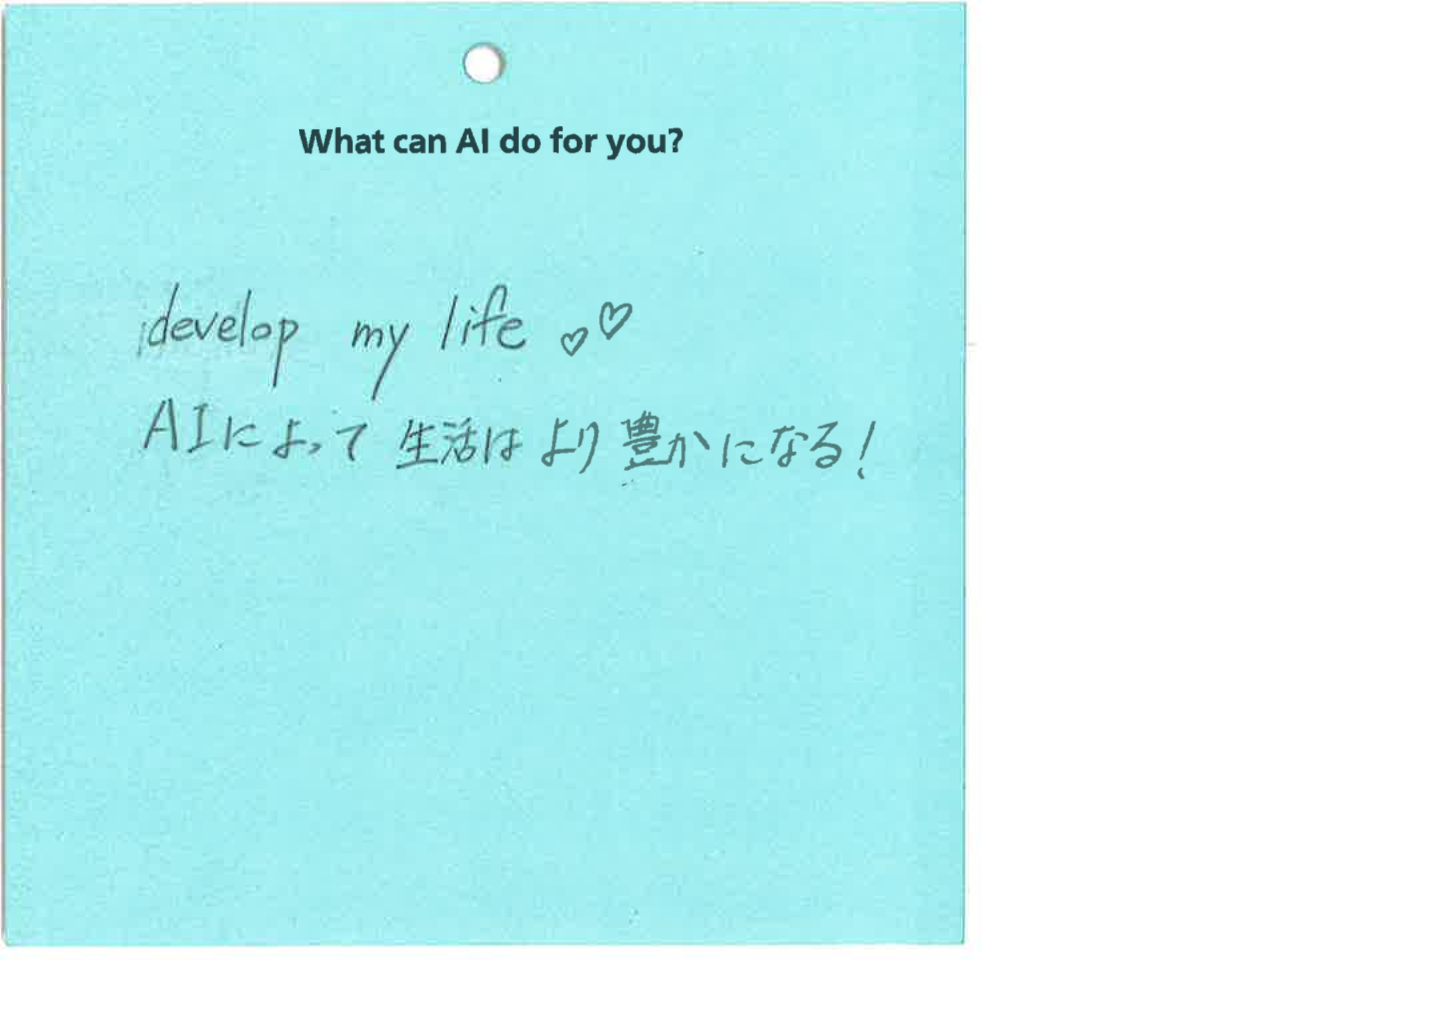 What can AI do for you?
develop my life ♡♡
AIによって生活はより豊かになる!